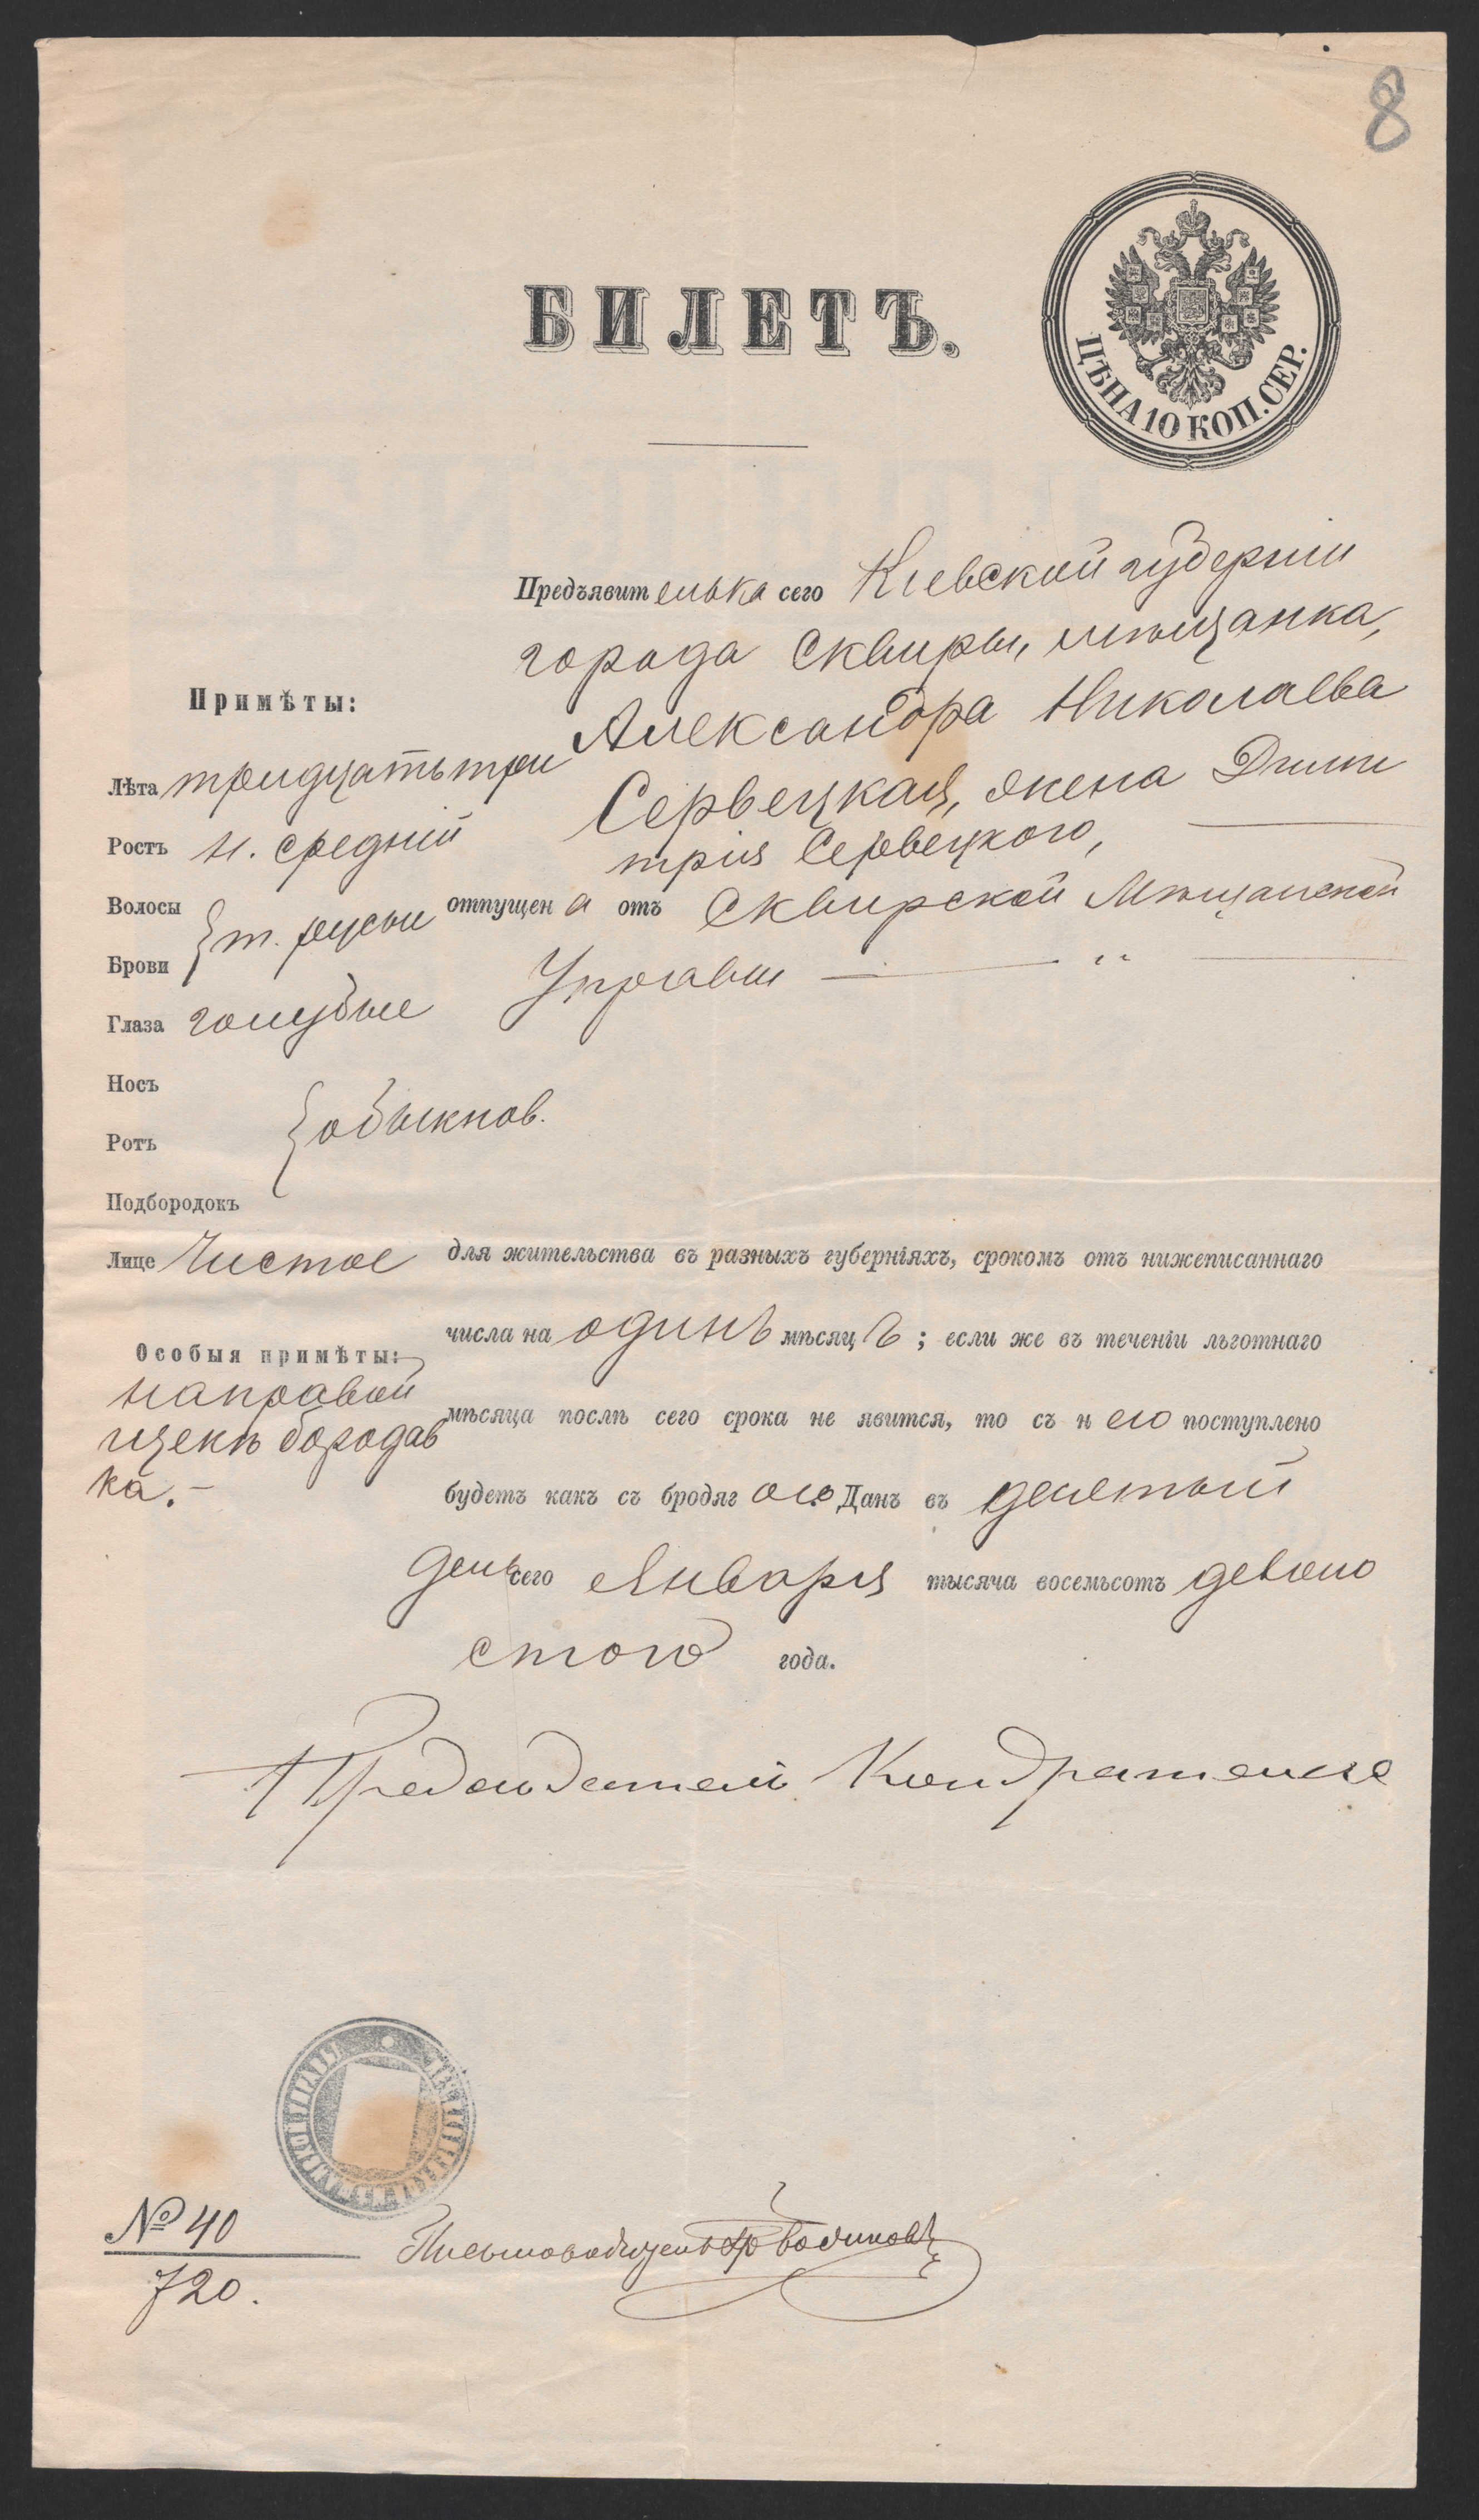 8
БИЛЕТЪ.
ЦѢНА 10 КОП. СЕР.
Предъявителька сего Кіевской губерніи
города Сквиры, мѣщанка,
Александра Николаева
Сервецкая, жена Дими
трія Сервецкого,
отпущена отъ Сквирской Мѣщанской
Управы
Примѣты:
Лѣта тридцать три
Ростъ н. средній
Волосы
Брови } т. русые
Глаза голубые
Носъ
Ротъ } обыкнов.
Подбородокъ
Лице Чистое
Особыя примѣты:
на правой
щекѣ бородав
ка.-
для жительства въ разныхъ губерніяхъ, срокомъ отъ нижеписаннаго
числа на одинъ мѣсяцъ; если же въ теченіи льготнаго
мѣсяца послѣ сего срока не явится, то съ нею поступлено
будетъ какъ съ бродягою. Данъ въ десятый
день сего Января тысяча восемьсотъ девяно
стого года.
Предсѣдатель Кондратенко
№ 40
720.
Письмоводитель